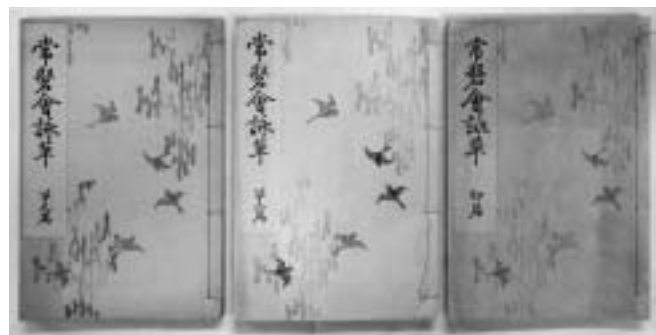 常磐會詠草
初篇
常磐會詠草
常磐會詠草